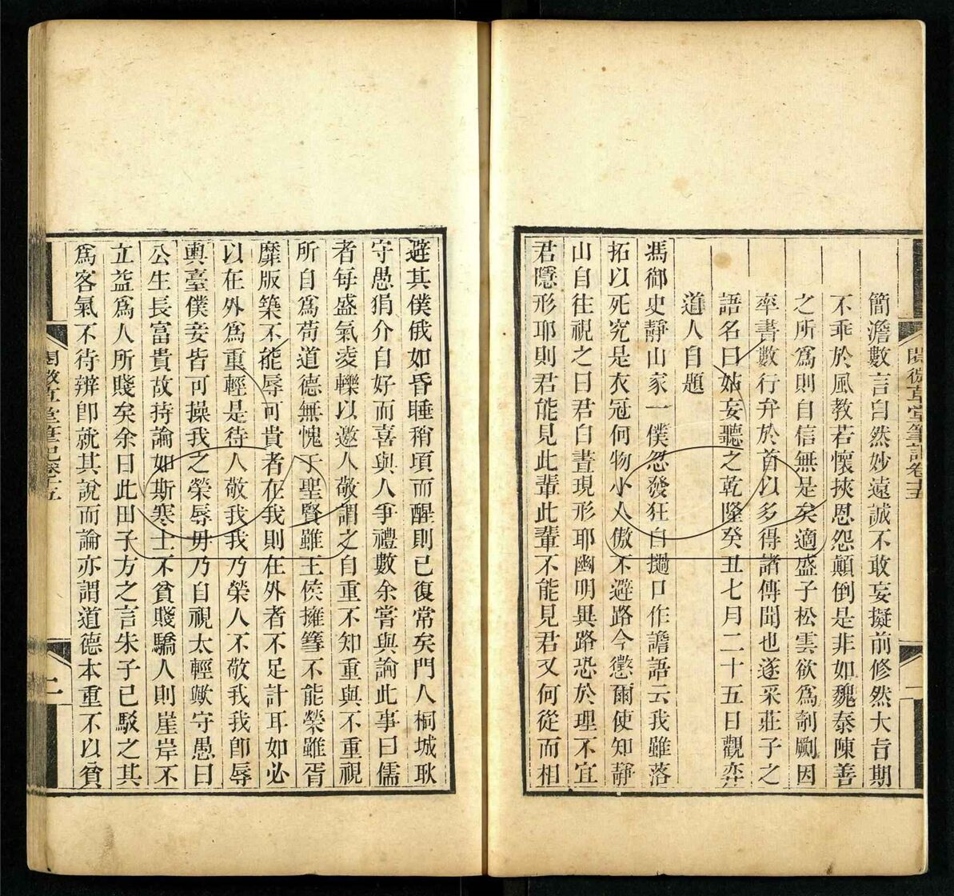 簡澹數言自然妙遠誠不敢妄擬前修然大旨期
不乖於風教若懷挾恩怨顛倒是非如魏泰陳善
之所爲則自信無是矣適盛子松雲欲爲剞劂因
率書數行弁於首以多得諸傳聞也遂采莊子之
語名曰姑妄聽之乾隆癸丑七月二十五日觀弈
道人自題
馮御史靜山家一僕忽發狂自撾口作譫語云我雖落
拓以死究是衣冠何物小人傲不避路今懲爾使知靜
山自往視之曰君白晝現形耶幽明異路恐於理不宜
君隱形耶則君能見此輩此輩不能見君又何從而相
避其僕俄如昏睡稍頃而醒則已復常矣門人桐城耿
守愚狷介自好而喜與人爭禮數余嘗與論此事曰儒
者每盛氣凌轢以邀人敬謂之自重不知重與不重視
所自爲苟道德無愧于聖賢雖王侯擁篲不能榮雖胥
靡版築不能辱可貴者在我則在外者不足計耳如必
以在外爲重輕是待人敬我我乃榮人不敬我我卽辱
輿臺僕妾皆可操我之榮辱毋乃自視太輕歟守愚曰
公生長富貴故持論如斯寒士不貧賤驕人則崖岸不
立益爲人所賤矣余曰此田子方之言朱子已駁之其
爲客氣不待辨卽就其說而論亦謂道德本重不以貧
閱微草堂筆記卷十五
二